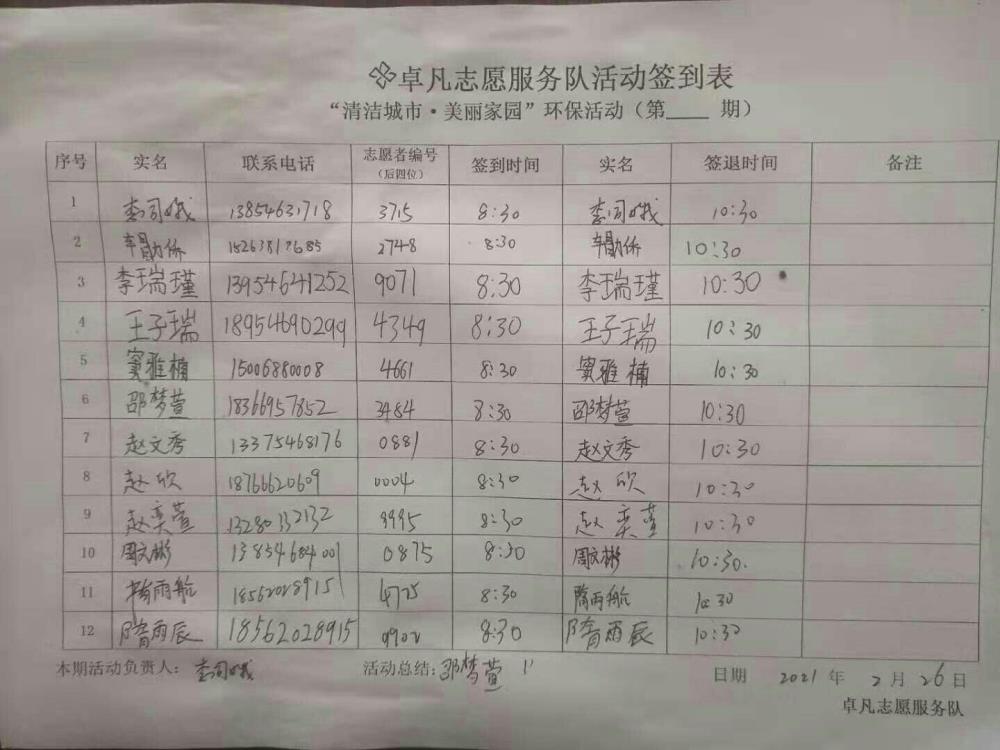 卓凡志愿服务队活动签到表
“清洁城市·美丽家园”环保活动（第____期）
序号 实名 联系电话 志愿者编号（后四位） 签到时间 实名 签退时间 备注
1 13854631718 3715 8:30 10:30
2 2748 8:30 10:30
3 李瑞瑾 13954641252 9071 8:30 李瑞瑾 10:30
4 王子瑞 18954690299 4349 8:30 王子瑞 10:30
5 窦雅楠 15006880008 4661 8:30 窦雅楠 10:30
6 邵梦萱 18366957852 3484 8:30 邵梦萱 10:30
7 赵文秀 13375468176 0881 8:30 赵文秀 10:30
8 赵欣 18766620609 0004 8:30 赵欣 10:30
9 赵奕萱 13280332132 9995 8:30 赵奕萱 10:30
10 周文彬 13854684001 0875 8:30 周文彬 10:30.
11 隋雨航 18562028915 4725 8:30 隋雨航 10:30
12 隋雨辰 18562028915 8:30 隋雨辰 10:30
本期活动负责人： 活动总结：邵梦萱 日期 2021年2月26日
卓凡志愿服务队